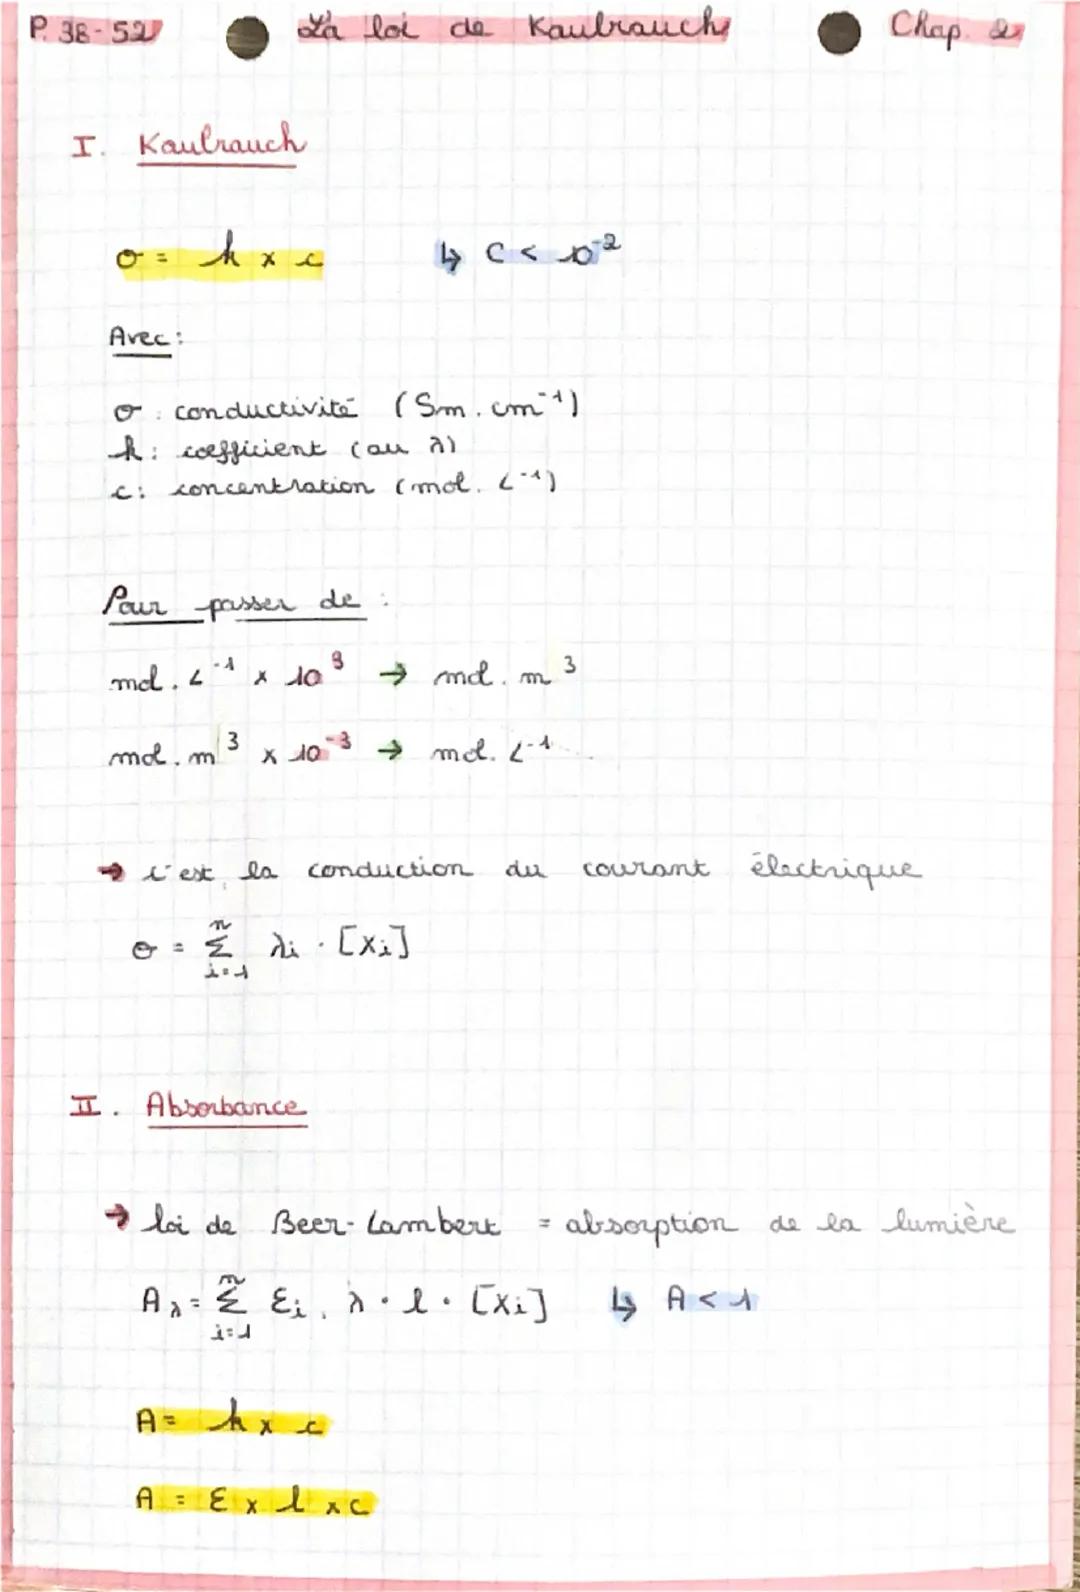 P. 38-52 La loi de Kaulrauch Chap. 2
I. Kaulrauch
σ = k x c ↳ C < 10⁻²
Avec :
σ : conductivité (Sm. cm⁻¹)
k : coefficient (ou λ)
c : concentration (mol. L⁻¹)
Pour passer de :
mol. L⁻¹ x 10³ → mol. m³
mol. m³ x 10⁻³ → mol. L⁻¹
→ c'est la conduction du courant électrique
σ = n Σ i=1 λi · [Xi]
II. Absorbance
→ loi de Beer-Lambert = absorption de la lumière
A λ = n Σ i=1 Ɛi, λ · l · [Xi] ↳ A < 1
A = k x c
A = Ɛ x l x c